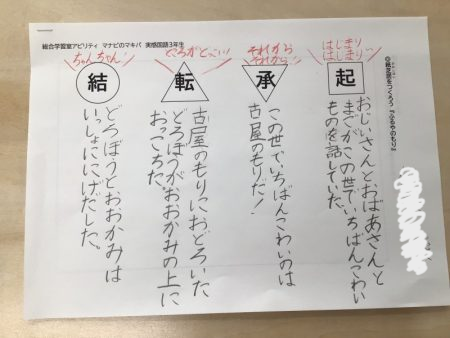 総合学習室アビリティ マナビのマキバ 実感国語3年生
◎紙芝居をつくろう『ふるやのもり』
はじまり
はじまり
起
おじいさんとおばあさんと
まごがこの世でいちばんこわい
ものを話していた。
それから
それから…
承
この世でいちばんこわいのは
古屋のもりだ！
ところがどっこい
転
古屋のもりにおどろいた
どろぼうがおおかみの上に
おっこちた。
ちゃんちゃん！
結
どろぼうとおおかみは
いっしょににげだした。